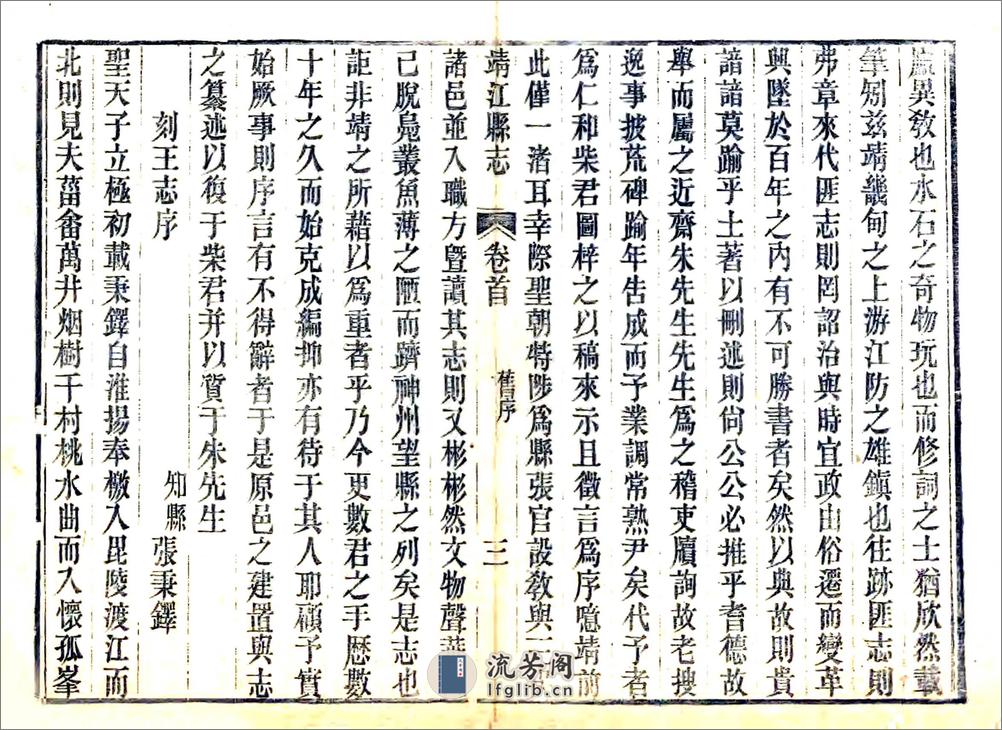 異教也水石之奇物玩也而修詞之士猶欣然載
筆矧兹靖畿甸之上游江防之雄鎮也往跡匪志則
弗章來代匪志則罔詔治與時宜政由俗遷而變革
興墜於百年之內有不可勝書者矣然以典故則貴
諳諳莫踰乎土著以刪述則尚公公必推乎耆德故
舉而屬之近齋朱先生先生為之稽吏牘詢故老搜
逸事披荒碑踰年告成而予業調常熟尹矣代予者
為仁和柴君圖梓之以稿來示且徵言為序噫靖前
此僅一渚耳幸際聖朝特陟為縣張官設教與
靖江縣志
卷首
舊序
三
諸邑並入職方暨讀其志則又彬彬然文物聲
已脫鳧叢魚薄之陋而躋神州望縣之列矣是志也
詎非靖之所藉以為重者乎乃今更數君之手歷數
十年之久而始克成編抑亦有待于其人耶顧予實
始厥事則序言有不得辭者于是原邑之建置與志
之纂述以復于柴君并以質于朱先生
刻王志序
知縣 張秉鐸
聖天子立極初載秉鐸自淮揚奉檄入毘陵渡江而
北則見夫菑畬萬井烟樹千村桃水曲而入懷孤峯
流芳阁
lfglib.cn